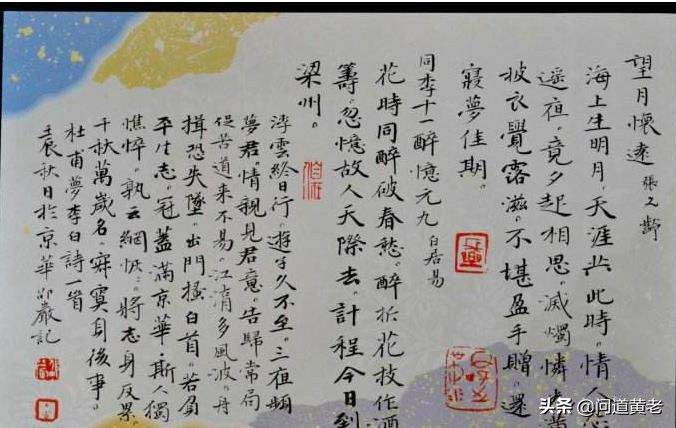 望月懷遠 張九齡
海上生明月。天涯共此時。情人怨
遥夜。竟夕起相思。滅燭憐光滿
披衣覺露滋。不堪盈手贈。還
寢夢佳期。
同李十一醉憶元九 白居易
花時同醉破春愁。醉折花枝作酒
籌。忽憶故人天際去。計程今日到
梁州。
浮雲終日行。遊子久不至。三夜頻
夢君。情親見君意。告歸常局
促。苦道来不易。江湖多風波。舟
楫恐失墜。出門搔白首。若負
平生志。冠蓋滿京華。斯人獨
憔悴。孰云網恢。將老身反累。
千秋萬歲名。寂寞身後事。
杜甫夢李白詩一首
壬辰秋日於京華邵巖記
头条 @问道黄老